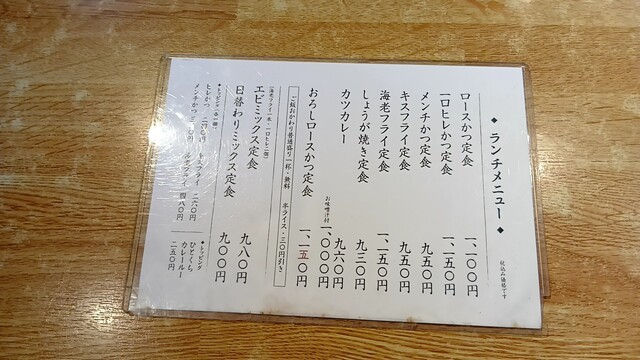 ◆ ランチメニュー ◆
税込み価格です
ロースかつ定食 一、一〇〇円
一口ヒレかつ定食 一、一五〇円
メンチかつ定食 九五〇円
キスフライ定食 九五〇円
海老フライ定食 一、一五〇円
しょうが焼き定食 九三〇円
カツカレー 九六〇円
お味噌汁付 一、〇〇〇円
おろしロースかつ定食 一、一五〇円
ご飯おかわり普通盛り一杯・無料 半ライス・三〇円引き
エビミックス定食 九八〇円
(海老フライ一本・一口ヒレ二個)
日替わりミックス定食 九〇〇円
◆トッピング(各一個)
ヒレかつ キスフライ 二六〇円
メンチかつ フライ 四八〇円
◆トッピング
ひとくち
カレールー
二五〇円